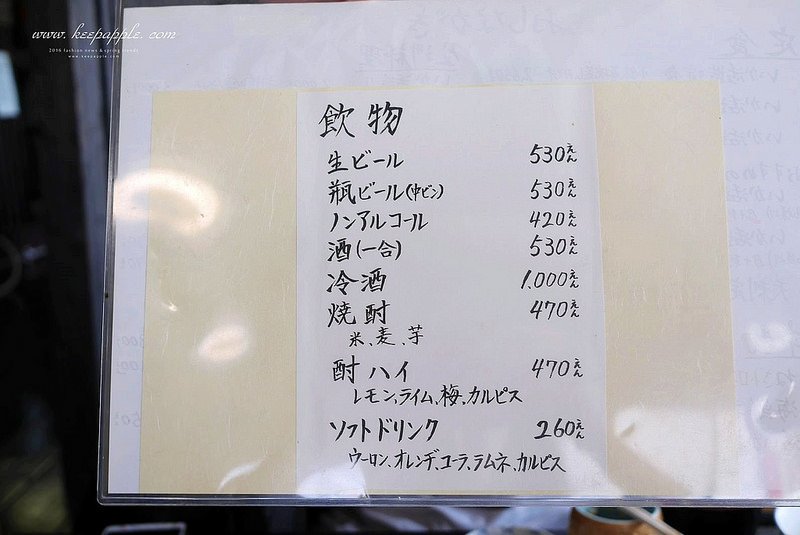 www. keepapple. com
2016 fashion news & spring trends
www.keepapple.com
飲物
生ビール 530えん
瓶ビール(中ビン) 530えん
ノンアルコール 420えん
酒(一合) 530えん
冷酒 1.000えん
焼酎 470えん
米、麦、芋
酎ハイ 470えん
レモン、ライム、梅、カルピス
ソフトドリンク 260えん
ウーロン、オレンヂ、コーラ、ラムネ、カルピス